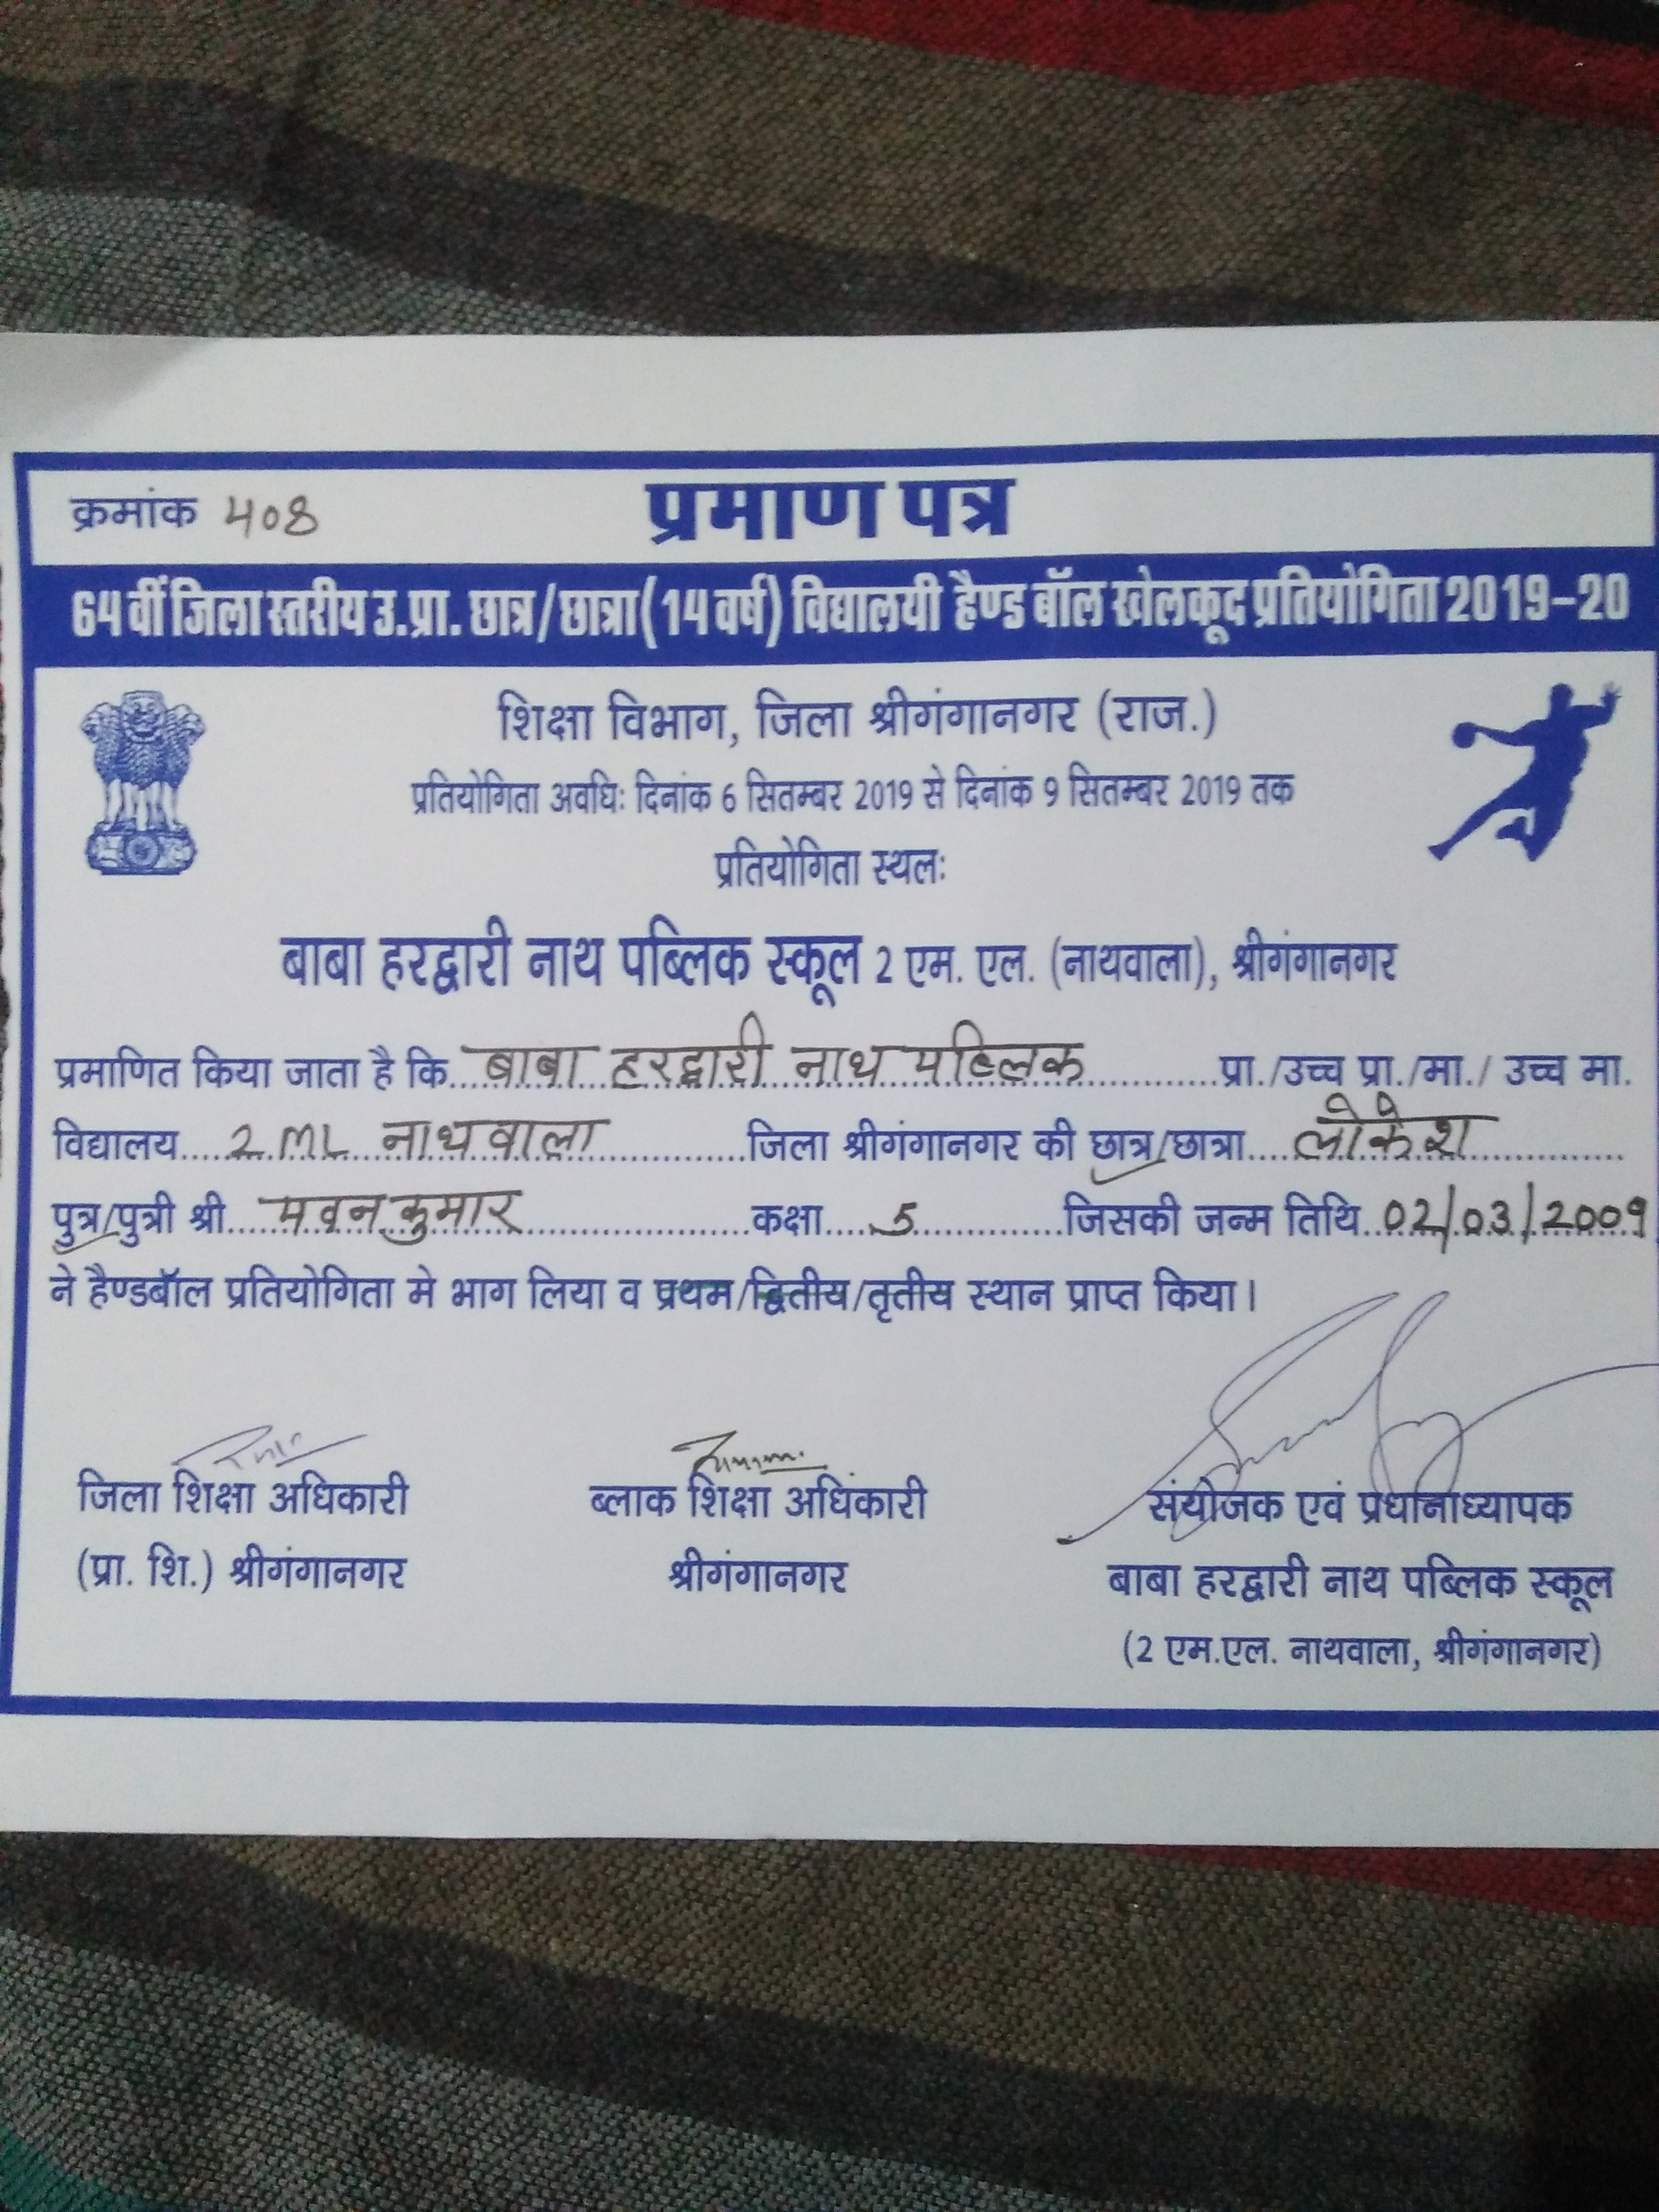 क्रमांक 408
प्रमाण पत्र
64 वीं जिला स्तरीय उ.प्रा. छात्र/छात्रा (14 वर्ष) विद्यालयी हैण्ड बॉल खेलकूद प्रतियोगिता 2019-20
शिक्षा विभाग, जिला श्रीगंगानगर (राज.)
प्रतियोगिता अवधिः दिनांक 6 सितम्बर 2019 से दिनांक 9 सितम्बर 2019 तक
प्रतियोगिता स्थलः
बाबा हरद्वारी नाथ पब्लिक स्कूल 2 एम. एल. (नाथवाला), श्रीगंगानगर
प्रमाणित किया जाता है कि बाबा हरद्वारी नाथ पब्लिक प्रा./उच्च प्रा./मा./ उच्च मा.
विद्यालय 2 ML नाथवाला जिला श्रीगंगानगर की छात्र/छात्रा लोकेश
पुत्र/पुत्री श्री पवन कुमार कक्षा 5 जिसकी जन्म तिथि 02/03/2009
ने हैण्डबॉल प्रतियोगिता मे भाग लिया व प्रथम/द्वितीय/तृतीय स्थान प्राप्त किया।
जिला शिक्षा अधिकारी
(प्रा. शि.) श्रीगंगानगर
ब्लाक शिक्षा अधिकारी
श्रीगंगानगर
संयोजक एवं प्रधानाध्यापक
बाबा हरद्वारी नाथ पब्लिक स्कूल
(2 एम.एल. नाथवाला, श्रीगंगानगर)